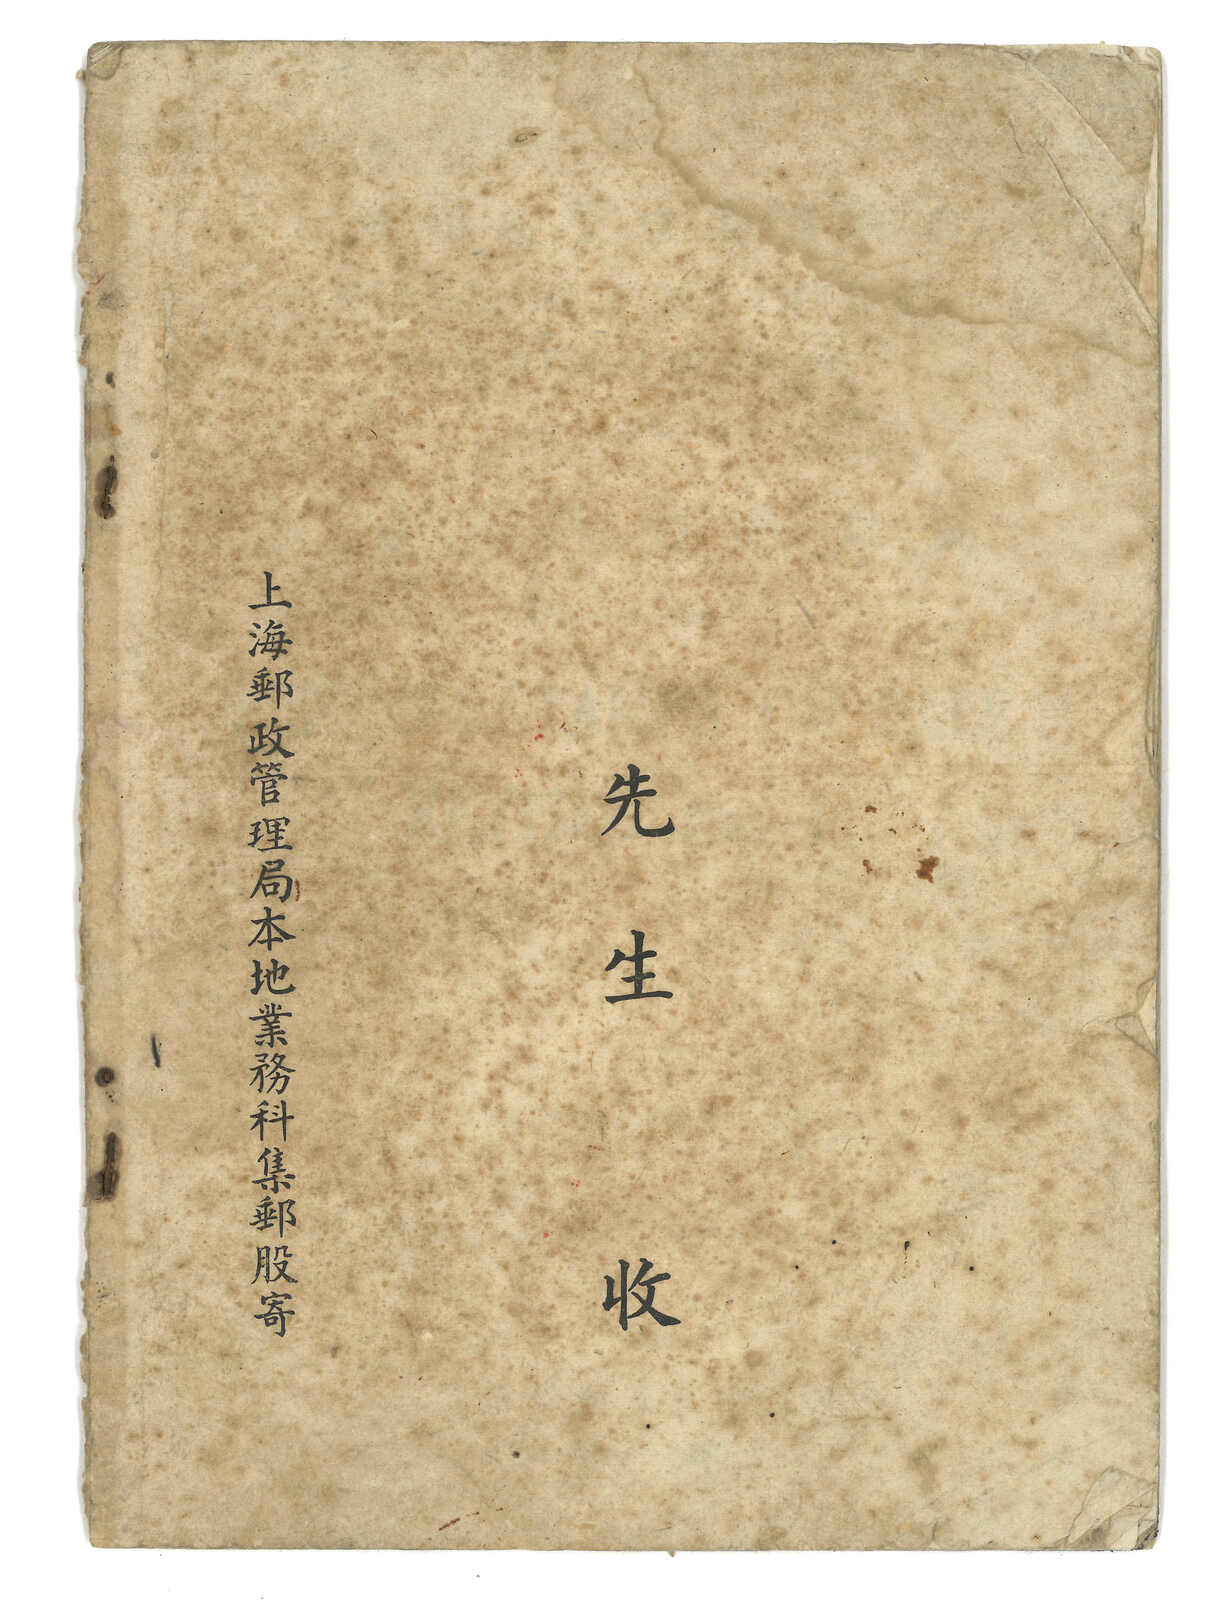 先生 收
上海郵政管理局本地業務科集郵股寄